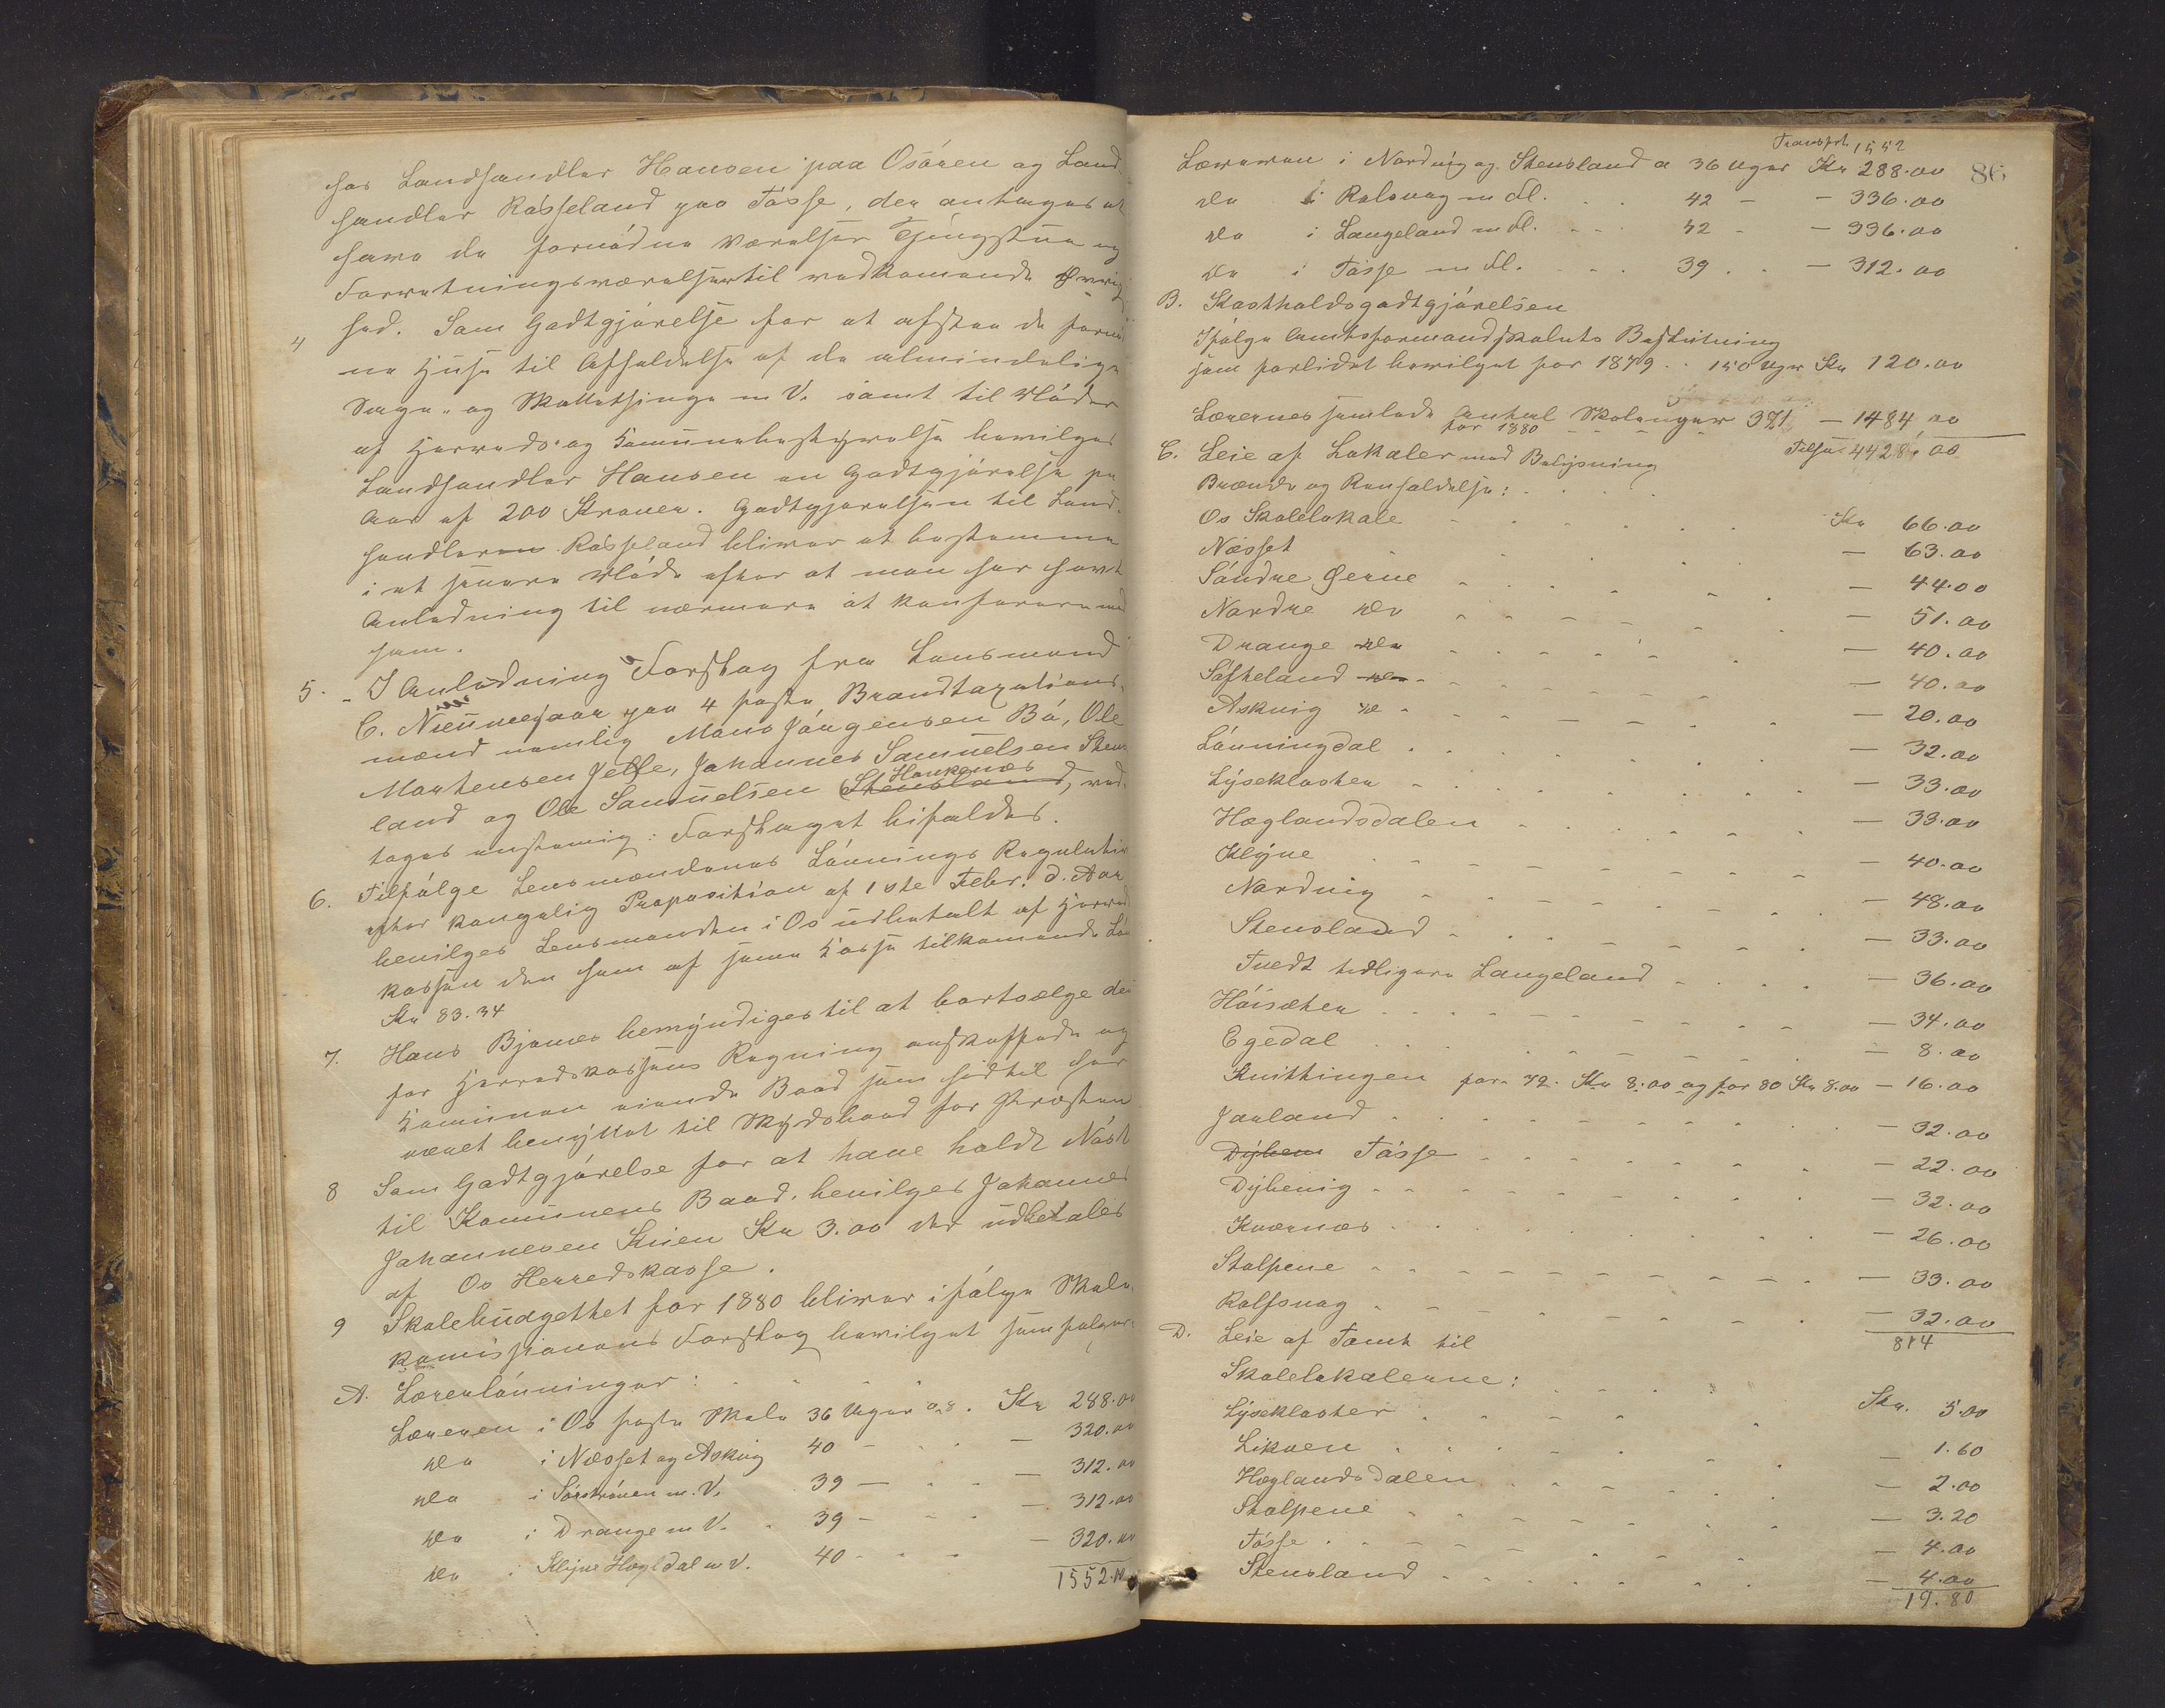 hos Landhandler Hansen paa Osören og Land-
handler Rösseland paa Tösse, der antages at
have de fornödne Værelser Thingstue og
Forretningsværelser til vedkomende Øvrig
4 hed. Som Godtgjörelse for at afstaa de fornö
ne Huse til Afholdelse af de almindelige
Sage- og Skattethinge m V. samt til Möder
af Herreds- og Komunebestyrelse bevilges
Landhandler Hansen en Godtgjörelse pr
Aar af 200 Kroner. Godtgjörelsen til Land-
handleren Rösseland bliver at bestemme
i et senere Möde efter at man har havt
Anledning til nærmere at konferere med
ham.
5. - I Anledning Forslag fra Lensmand
C. Nummesaar paa 4 faste Brandtaxations-
mænd nemlig Mons Jörgensen Bö, Ole
Mortensen Jelle, Johannes Samuelsen Stens
land og Ole Samuelsen Stensland Haukenæs, ved-
toges enstemig: Forslaget bifaldes.
6. Tilfölge Lensmændenes Lönnings Regulativ
efter kongelig Proposition af 1ste Febr. d. Aar
bevilges Lensmanden i Os udbetalt af Herreds
kassen den ham af samme Kasse tilkomende Lön
Kr 83.34
7. Hans Bjørnes bemyndiges til at bortsælge den
for Herredskassens Regning anskaffede og
Komunen eiende Baad som hidtil har
været benyttet til Skydsbaad for Præsten
8 Som Godtgjörelse for at have holdt Nöst
til Komunens Baad, bevilges Johannes
Johannesen Kuen Kr 3.00 der udbetales
af Os Herredskasse.
9 Skolebudgettet for 1880 bliver ifölge Skole-
komissionens Forslag bevilget som fölger:
A. Lærerlönninger:
Læreren i Os faste Skole 36 Uger a 8. Kr 288.00
do i Næsset og Askvig 40 - - 320.00
do i Söströnen m. V. 39 - - 312.00
do i Drange m V. 39 - - 312.00
do i Klyve Hegldal m V. 40 - - 320.00
1552.00
Transport 1552
86
Læreren i Nordvig og Stensland a 36 Uger Kr 288.00
do i Rolsvag m fl. 42 - - 336.00
do i Langeland m fl. 42 - - 336.00
do i Tösse m fl. 39 - - 312.00
B. Kostholdsgodtgjörelsen
Ifölge Amtsformandskabets Beslutning
som forlidet bevilget for 1879 .. 150 Uger Kr 120.00
Lærernes samlede Antal Skoleuger 371 - 1484,00
for 1880
Tilsa. 4428,00
C. Leie af Lokaler med Belysning
Brænde og Renholdelse:
Os Skolelokale Kr 66.00
Næsset - 63.00
Söndre Øerne - 44.00
Nordre do - 51.00
Drange do - 40.00
Söfteland do - 40.00
Askvig do - 20.00
Lönningdal - 32.00
Lyseklosten - 33.00
Hæglandsdalen - 33.00
Klyve - 40.00
Nordvig - 48.00
Stensland - 33.00
Tvedt tidligere Langeland - 36.00
Höisæter - 34.00
Egedal - 8.00
Kuittingen for 79. Kr 8.00 og for 80 Kr 8.00 - 16.00
Jorland - 32.00
Dyben Tösse - 22.00
Dybevig - 32.00
Kværnes - 26.00
Stolpene - 33.00
Rolfsvag - 32.00
814
D. Leie af Tomt til
Skolelokalerne:
Lyseklosten Kr. 5.00
Likven - 1.60
Hæglandsdalen - 2.00
Stolpene - 3.20
Tösse - 4.00
Stensland - 4.00
19.80